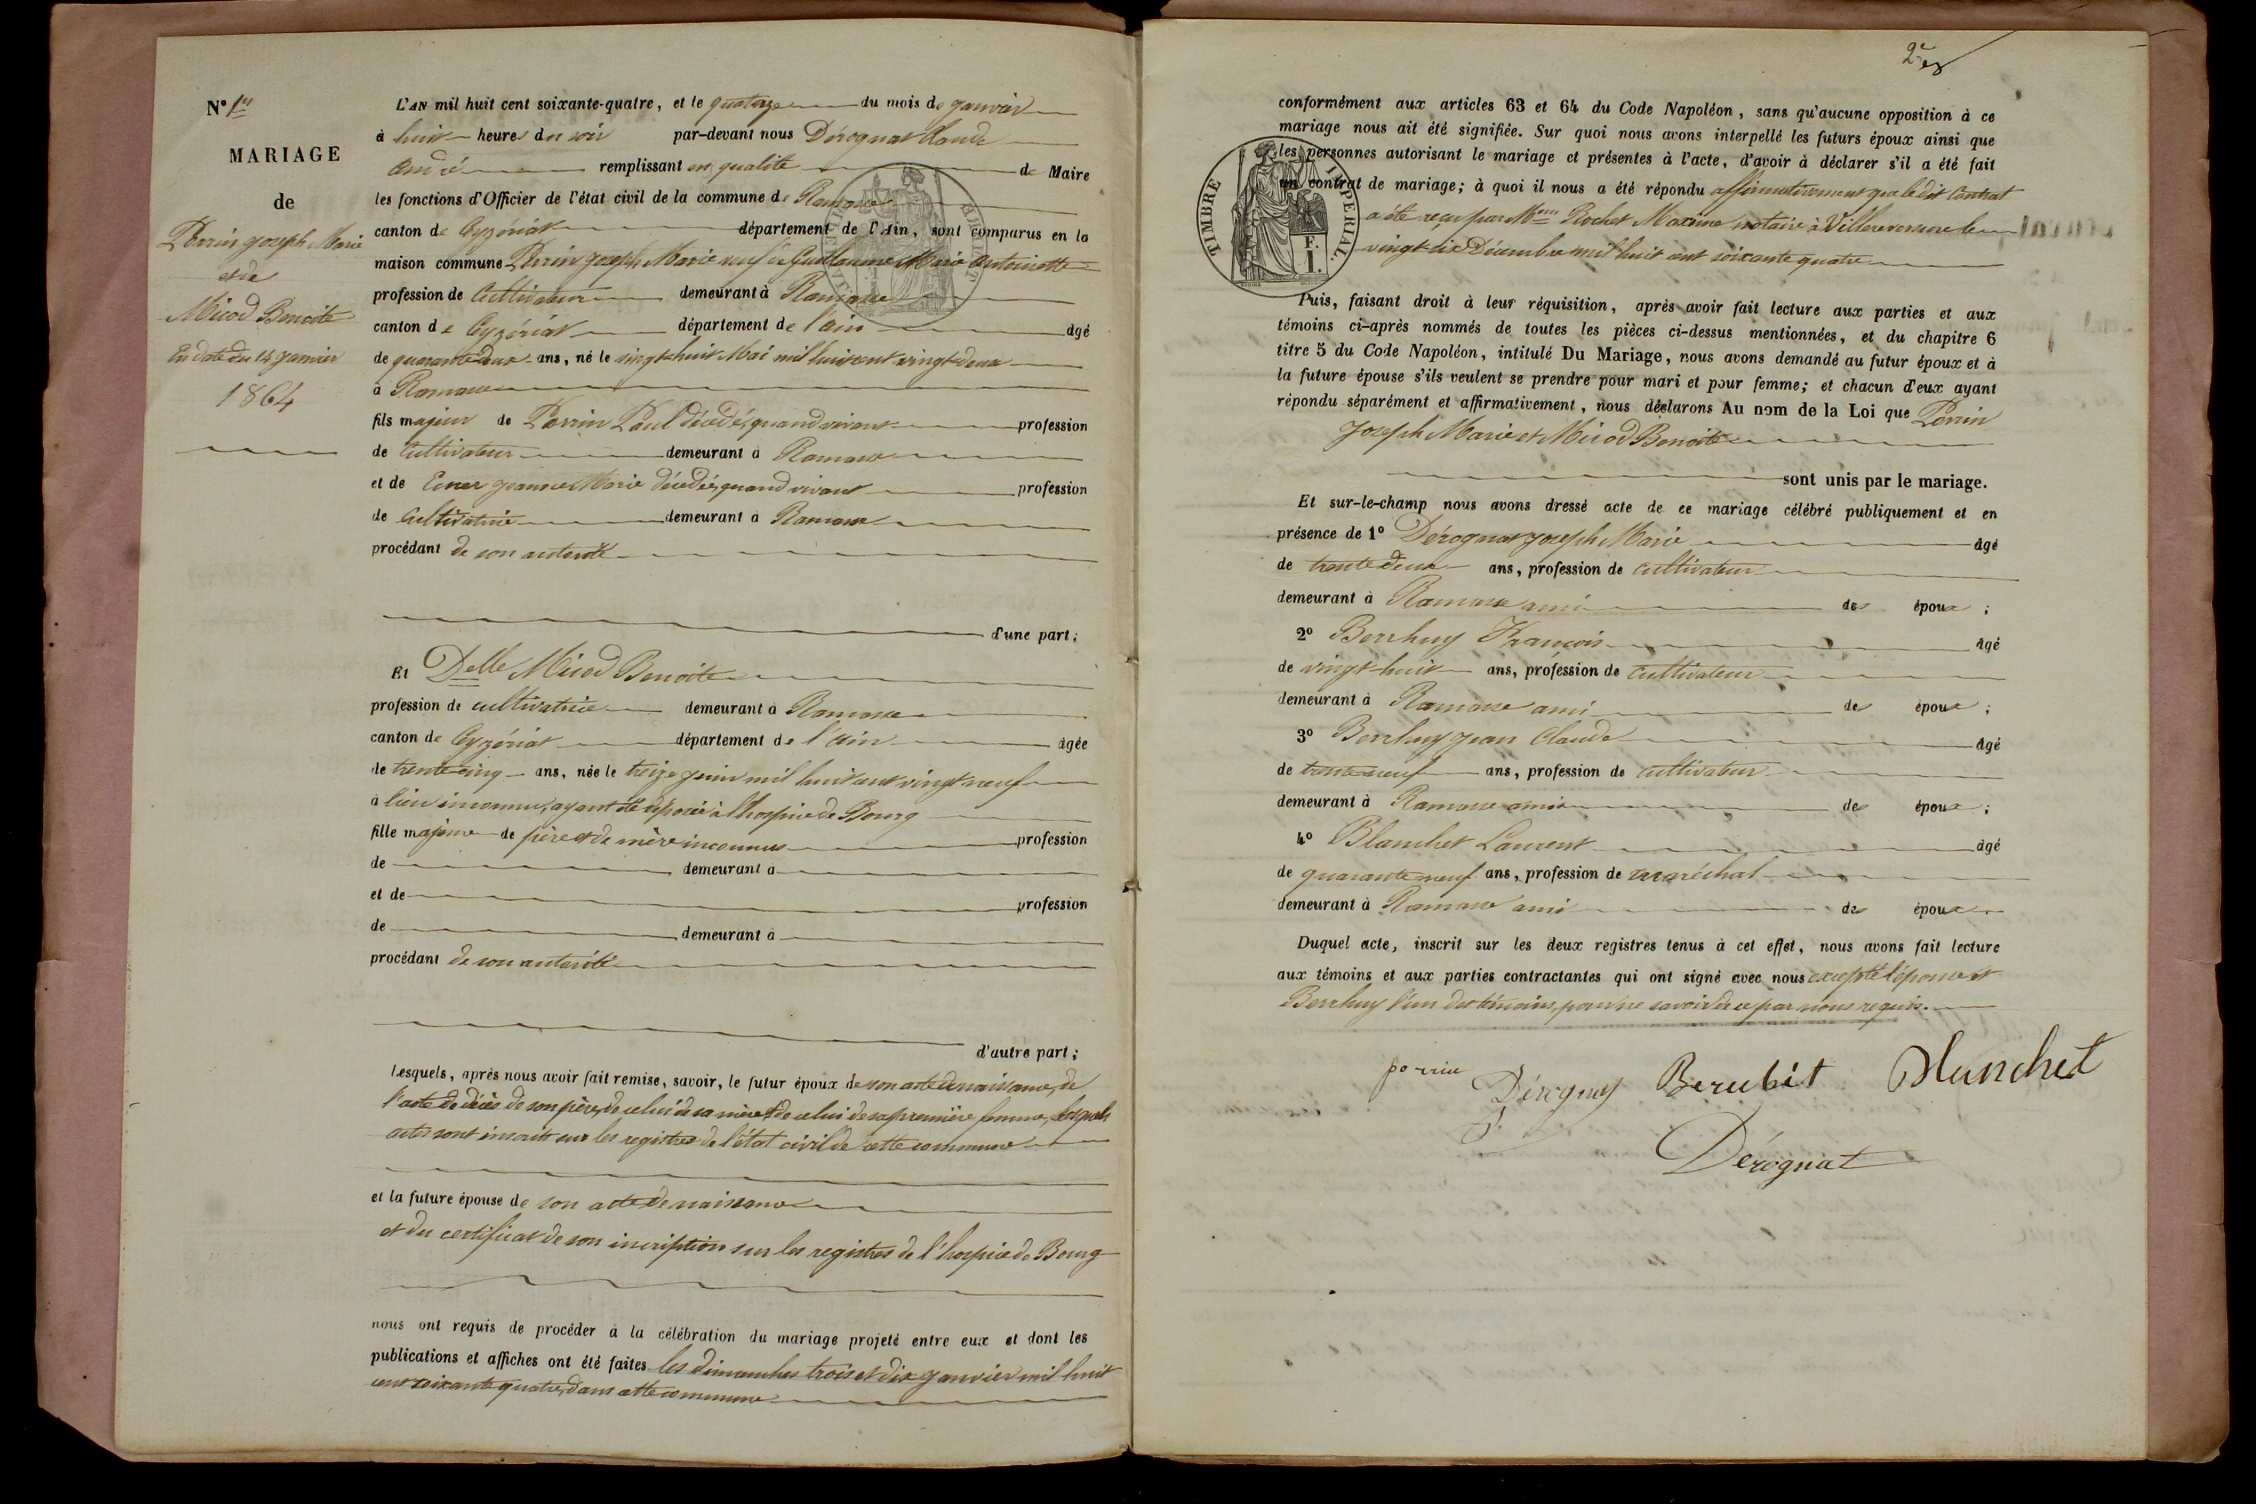 N° 1er
MARIAGE
de
Perrin Joseph Marie
et de
Micod Benoite
En date du 14 Janvier
1864
L'AN mil huit cent soixante-quatre, et le quatorze du mois de Janvier
à huit heures du soir par-devant nous Dérognat Claude
André remplissant en qualité de Maire
les fonctions d'Officier de l'état civil de la commune de Ramasse
canton de Ceyzériat département de l'Ain, sont comparus en la
maison commune Perrin Joseph Marie veuf de Guillaume Marie Antoinette
profession de Cultivateur demeurant à Ramasse
canton de Ceyzériat département de l'ain âgé
de quarante deux ans, né le vingt huit Mai mil huit cent vingt deux
à Ramasse
fils majeur de Perrin Paul décédé, quand vivant profession
de Cultivateur demeurant à Ramasse
et de Jeanne Marie décédée, quand vivant profession
de Cultivatrice demeurant à Ramasse
procédant de son autorité
d'une part;
Et Delle Micod Benoite
profession de cultivatrice demeurant à Ramasse
canton de Ceyzériat département de l'ain âgée
de trente cinq ans, née le treize Juin mil huit cent vingt neuf
à lieu inconnu, ayant été déposée à l'hospice de Bourg
fille majeure de père et de mère inconnus profession
de demeurant à
et de profession
de demeurant à
procédant de son autorité
d'autre part;
Lesquels, après nous avoir fait remise, savoir, le futur époux de son acte de naissance, de
l'acte de décès de son père, de celui de sa mère et de celui de sa première femme, lesquels
actes sont inscrits sur les registres de l'état civil de cette commune
et la future épouse de son acte de naissance
et du certificat de son incription sur les registres de l'hospice de Bourg
nous ont requis de procéder à la célébration du mariage projeté entre eux et dont les
publications et affiches ont été faites les dimanches trois et dix Janvier mil huit
cent soixante quatre, dans cette commune
2e
conformément aux articles 63 et 64 du Code Napoléon, sans qu'aucune opposition à ce
mariage nous ait été signifiée. Sur quoi nous avons interpellé les futurs époux ainsi que
les personnes autorisant le mariage et présentes à l'acte, d'avoir à déclarer s'il a été fait
un contrat de mariage; à quoi il nous a été répondu affirmativement que le dit Contrat
a été reçu par Rochet Maxime notaire à Villereversure le
vingt six Décembre mil huit cent soixante quatre
TIMBRE IMPERIAL.
1 F.
Puis, faisant droit à leur réquisition, après avoir fait lecture aux parties et aux
témoins ci-après nommés de toutes les pièces ci-dessus mentionnées, et du chapitre 6
titre 5 du Code Napoléon, intitulé Du Mariage, nous avons demandé au futur époux et à
la future épouse s'ils veulent se prendre pour mari et pour femme; et chacun d'eux ayant
répondu séparément et affirmativement, nous déclarons Au nom de la Loi que Perrin
Joseph Marie et Micod Benoite
sont unis par le mariage.
Et sur-le-champ nous avons dressé acte de ce mariage célébré publiquement et en
présence de 1° Dérognat Joseph Marie âgé
de trente deux ans, profession de cultivateur
demeurant à Ramasse ami des époux;
2° Berchuy François âgé
de vingt-huit ans, profession de cultivateur
demeurant à Ramasse ami des époux;
3° Berchuy Jean Claude âgé
de trente neuf ans, profession de cultivateur
demeurant à Ramasse ami des époux;
4° Blanchet Laurent âgé
de quarante neuf ans, profession de maréchal
demeurant à Ramasse ami des époux
Duquel acte, inscrit sur les deux registres tenus à cet effet, nous avons fait lecture
aux témoins et aux parties contractantes qui ont signé avec nous excepté l'épouse et
Berchuy l'un des témoins, pour ne savoir de ce par nous requis.
Blanchet
Dérognat